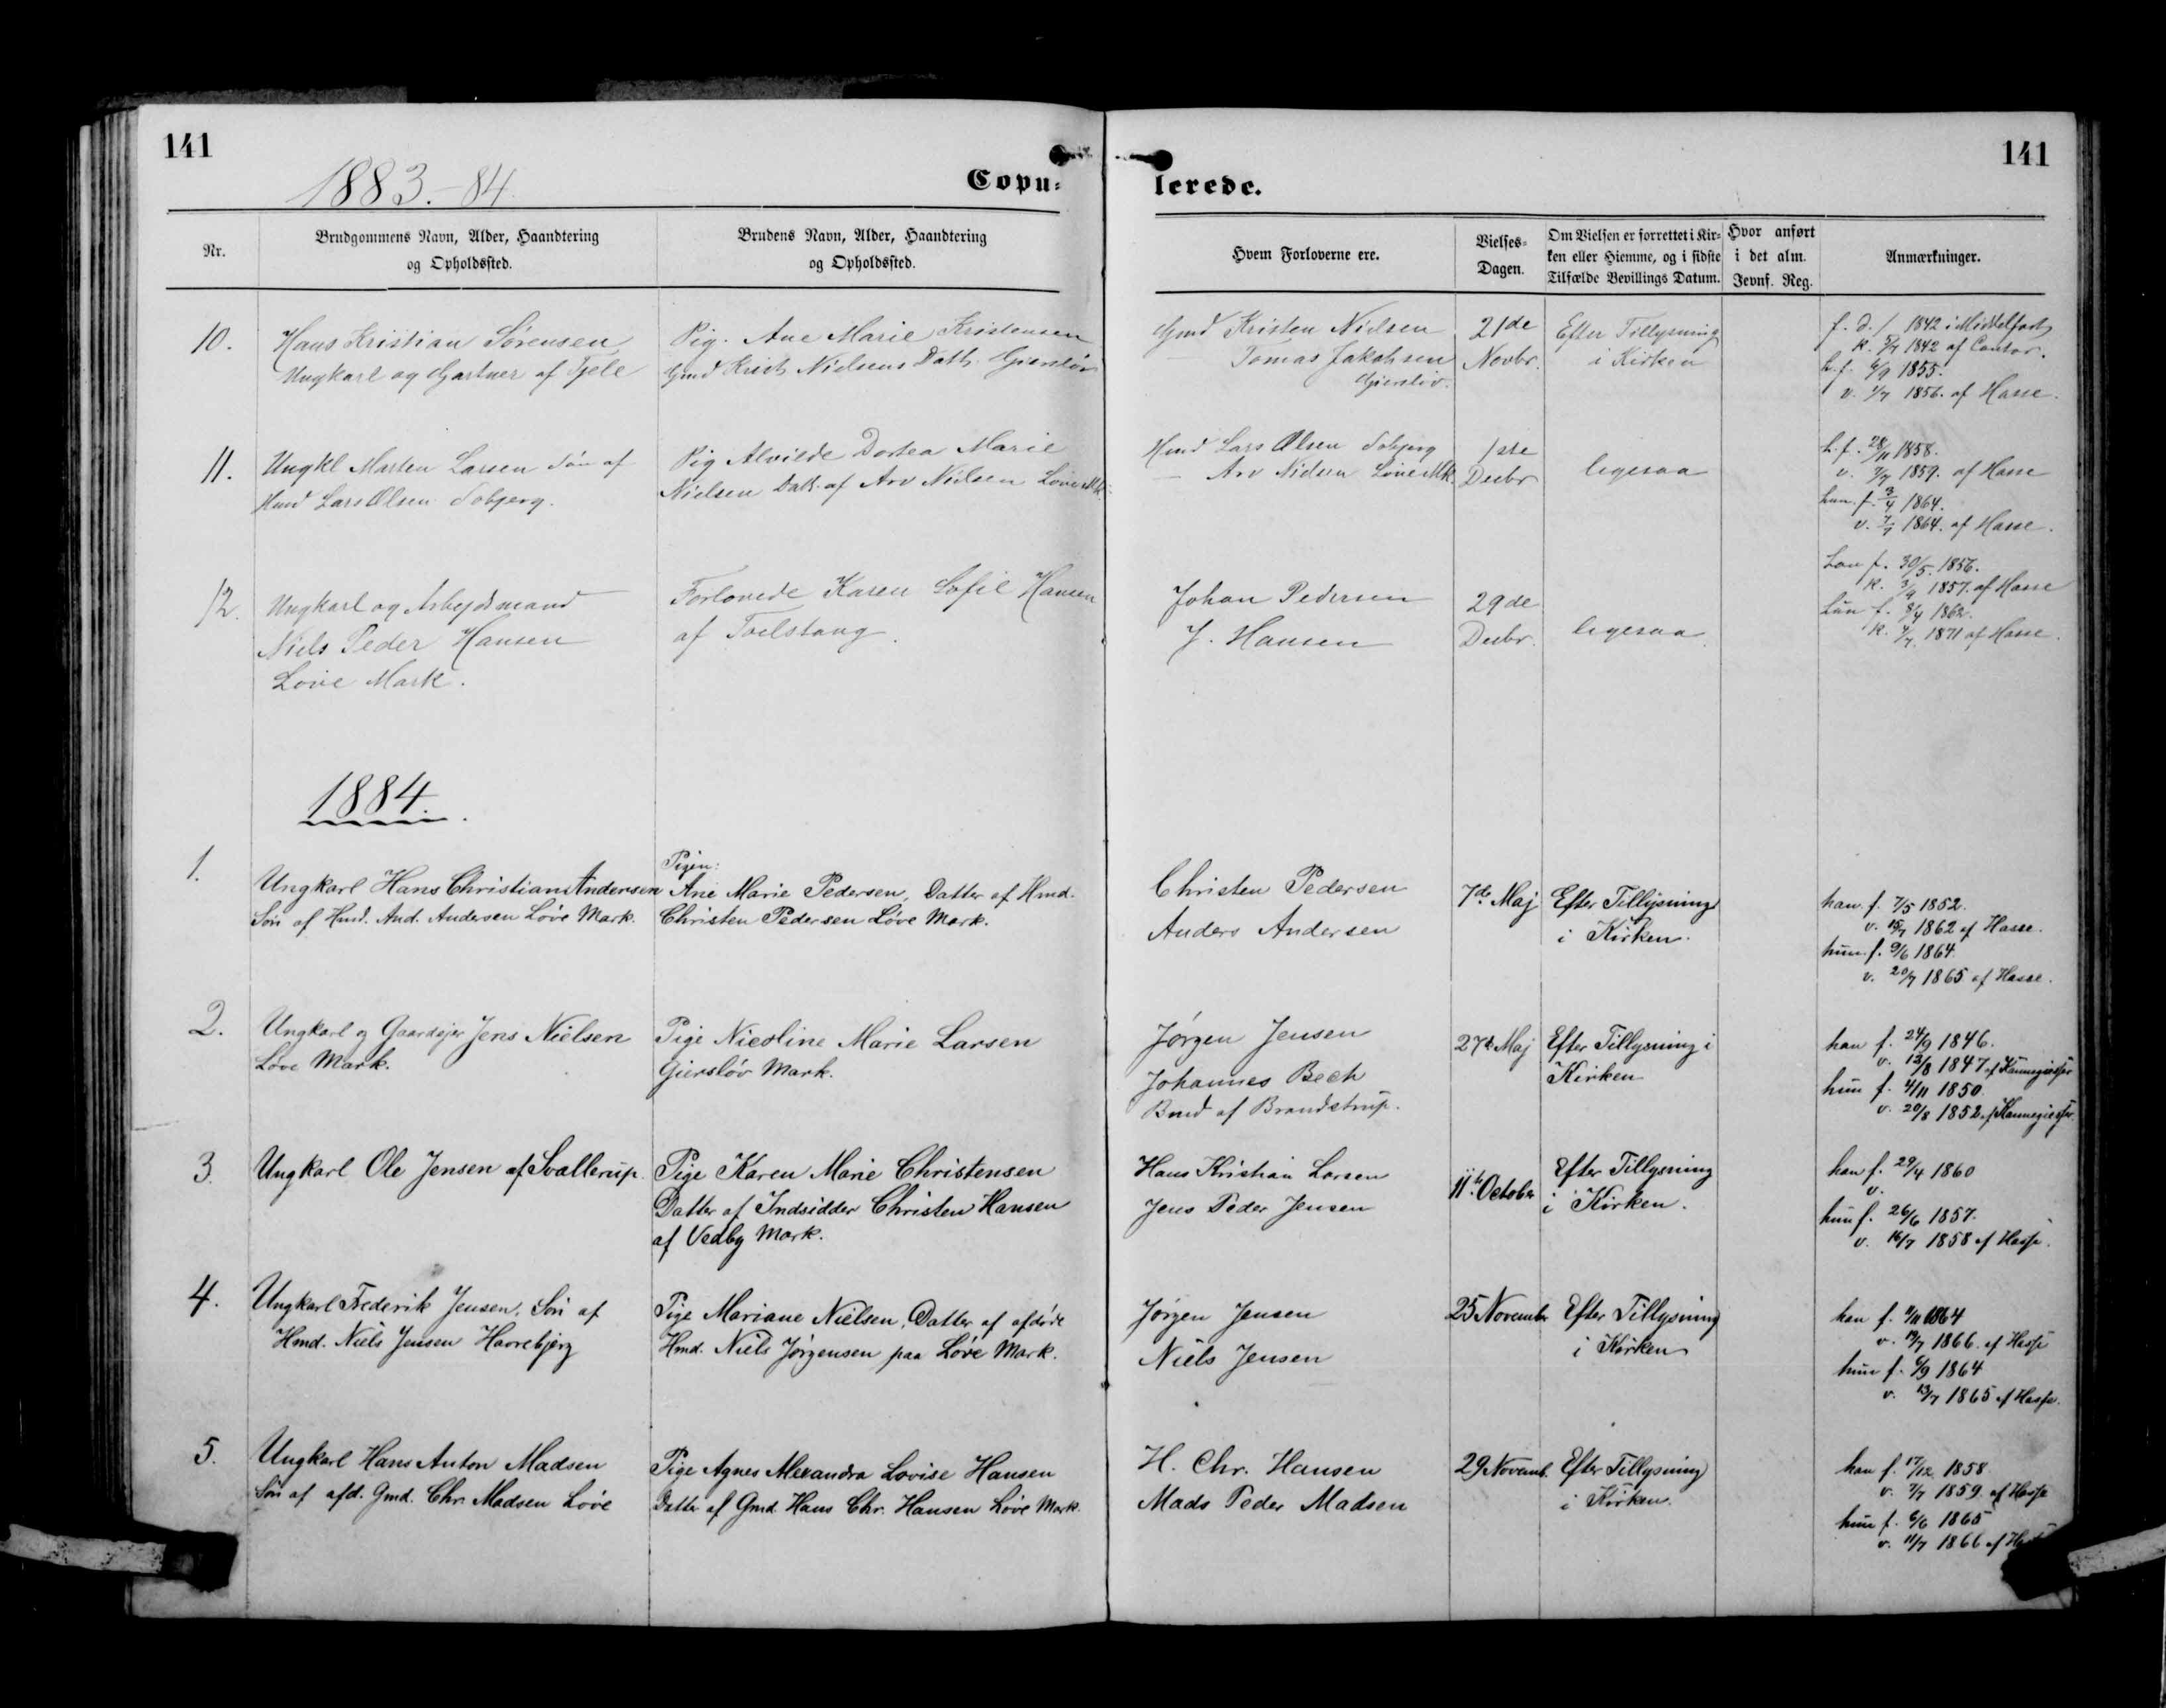 141
141
1883.-84.
Copu-
lerede.
Nr.
Brudgommens Navn, Alder, Haandtering
og Opholdssted.
Brudens Navn, Alder, Haandtering
og Opholdssted.
Hvem Forloverne ere.
Vielses-
Dagen.
Om Vielsen er forrettet i Kir-
ken eller Hiemme, og i sidste
Tilfælde Bevillings Datum.
Hvor anført
i det alm.
Jevnf. Reg.
Anmærkninger.
10.
Hans Kristian Sørensen
Ungkarl og Gartner af Tjele
Pig. Ane Marie Kristensen
Gmd Krist Nielsens Datt. Gierslöv
Gmd Kristen Nielsen
Tomas Jakobsen
Gierslöv.
21de
Novbr.
Efter Tillysning
i Kirken
f. d. / 1842 i Middelfart
k. 5/7 1842 af Cantor.
h. f. 6/9 1855.
v. 1/7 1856. af Hasse.
11.
Ungkl Marten Larsen Sön af
Hmd Lars Olsen Sobjerg.
Pig Alvilde Dortea Marie
Nielsen Datt. af Arv Nielsen Löve Mk.
Hmd Lars Olsen Sobjerg
— Arv Nielsen Löve Mk.
1ste
Decbr
ligesaa
h. f. 28/11 1858.
v. 7/7 1859. af Hasse
hun f. 3/4 1864.
v. 7/7 1864. af Hasse.
12.
Ungkarl og Arbejdsmand
Niels Peder Hansen
Löve Mark.
Forlovede Karen Sofie Hansen
af Toelstang.
Johan Pedersen
J. Hansen
29de
Decbr.
ligesaa.
han f. 30/5. 1856.
k. 3/9 1857. af Hasse
hun f. 8/4 1862.
k. 7/7. 1871 af Hasse.
1884.
1.
Ungkarl Hans Christian Andersen
Sön af Hmd. And. Andersen Löve Mark.
Pigen:
Ane Marie Pedersen, Datter af Hmd.
Christen Pedersen Löve Mark.
Christen Pedersen
Anders Andersen
7de Maj
Efter Tillysning
i Kirken.
han f. 7/5 1852.
v. 15/7 1862 af Hasse.
hun f. 9/6 1864.
v. 20/7 1865 af Hasse.
2.
Ungkarl og Gaardejer Jens Nielsen
Löve Mark.
Pige Nicoline Marie Larsen
Gierslöv Mark.
Jörgen Jensen
Johannes Bech
Bmd af Brandstrup.
27de Maj
Efter Tillysning i
Kirken
han f. 24/9 1846.
v. 13/8 1847 af Kannegiesser
hun f. 4/11 1850.
v. 20/8 1852 af Kannegiesser
3.
Ungkarl Ole Jensen af Svallerup.
Pige Karen Marie Christensen
Datter af Indsidder Christen Hansen
af Vedby Mark.
Hans Kristian Larsen
Jens Peder Jensen
11te October
Efter Tillysning
i Kirken.
han f. 29/4 1860
v.
hun f. 26/6 1857.
v. 16/7 1858 af Hasse.
4.
Ungkarl Frederik Jensen, Sön af
Hmd. Niels Jensen Havrebjerg
Pige Mariane Nielsen, Datter af afdöde
Hmd. Niels Jörgensen paa Löve Mark.
Jörgen Jensen
Niels Jensen
25 November
Efter Tillysning
i Kirken
han f. 11/11 1864
v. 19/7 1866. af Hasse
hun f. 6/9 1864
v. 13/7 1865 af Hasse.
5.
Ungkarl Hans Anton Madsen
Sön af afd. Gmd. Chr. Madsen Löve
Pige Agnes Alexandra Lovise Hansen
Datter af Gmd. Hans Chr. Hansen Löve Mark.
H. Chr. Hansen
Mads Peder Madsen
29 Novemb.
Efter Tillysning
i Kirken.
han f. 17/12 1858.
v. 7/7 1859. af Hasse
hun f. 6/6 1865
v. 11/7 1866 af